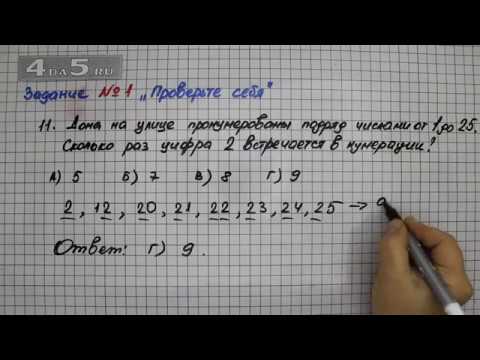 4 да 5.ru
Задание №1 „Проверьте себя"
11. Дома на улице пронумерованы подряд числами от 1 до 25.
Сколько раз цифра 2 встречается в нумерации?
А) 5 Б) 7 В) 8 Г) 9
2, 12, 20, 21, 22, 23, 24, 25 → 9
Ответ: Г) 9.